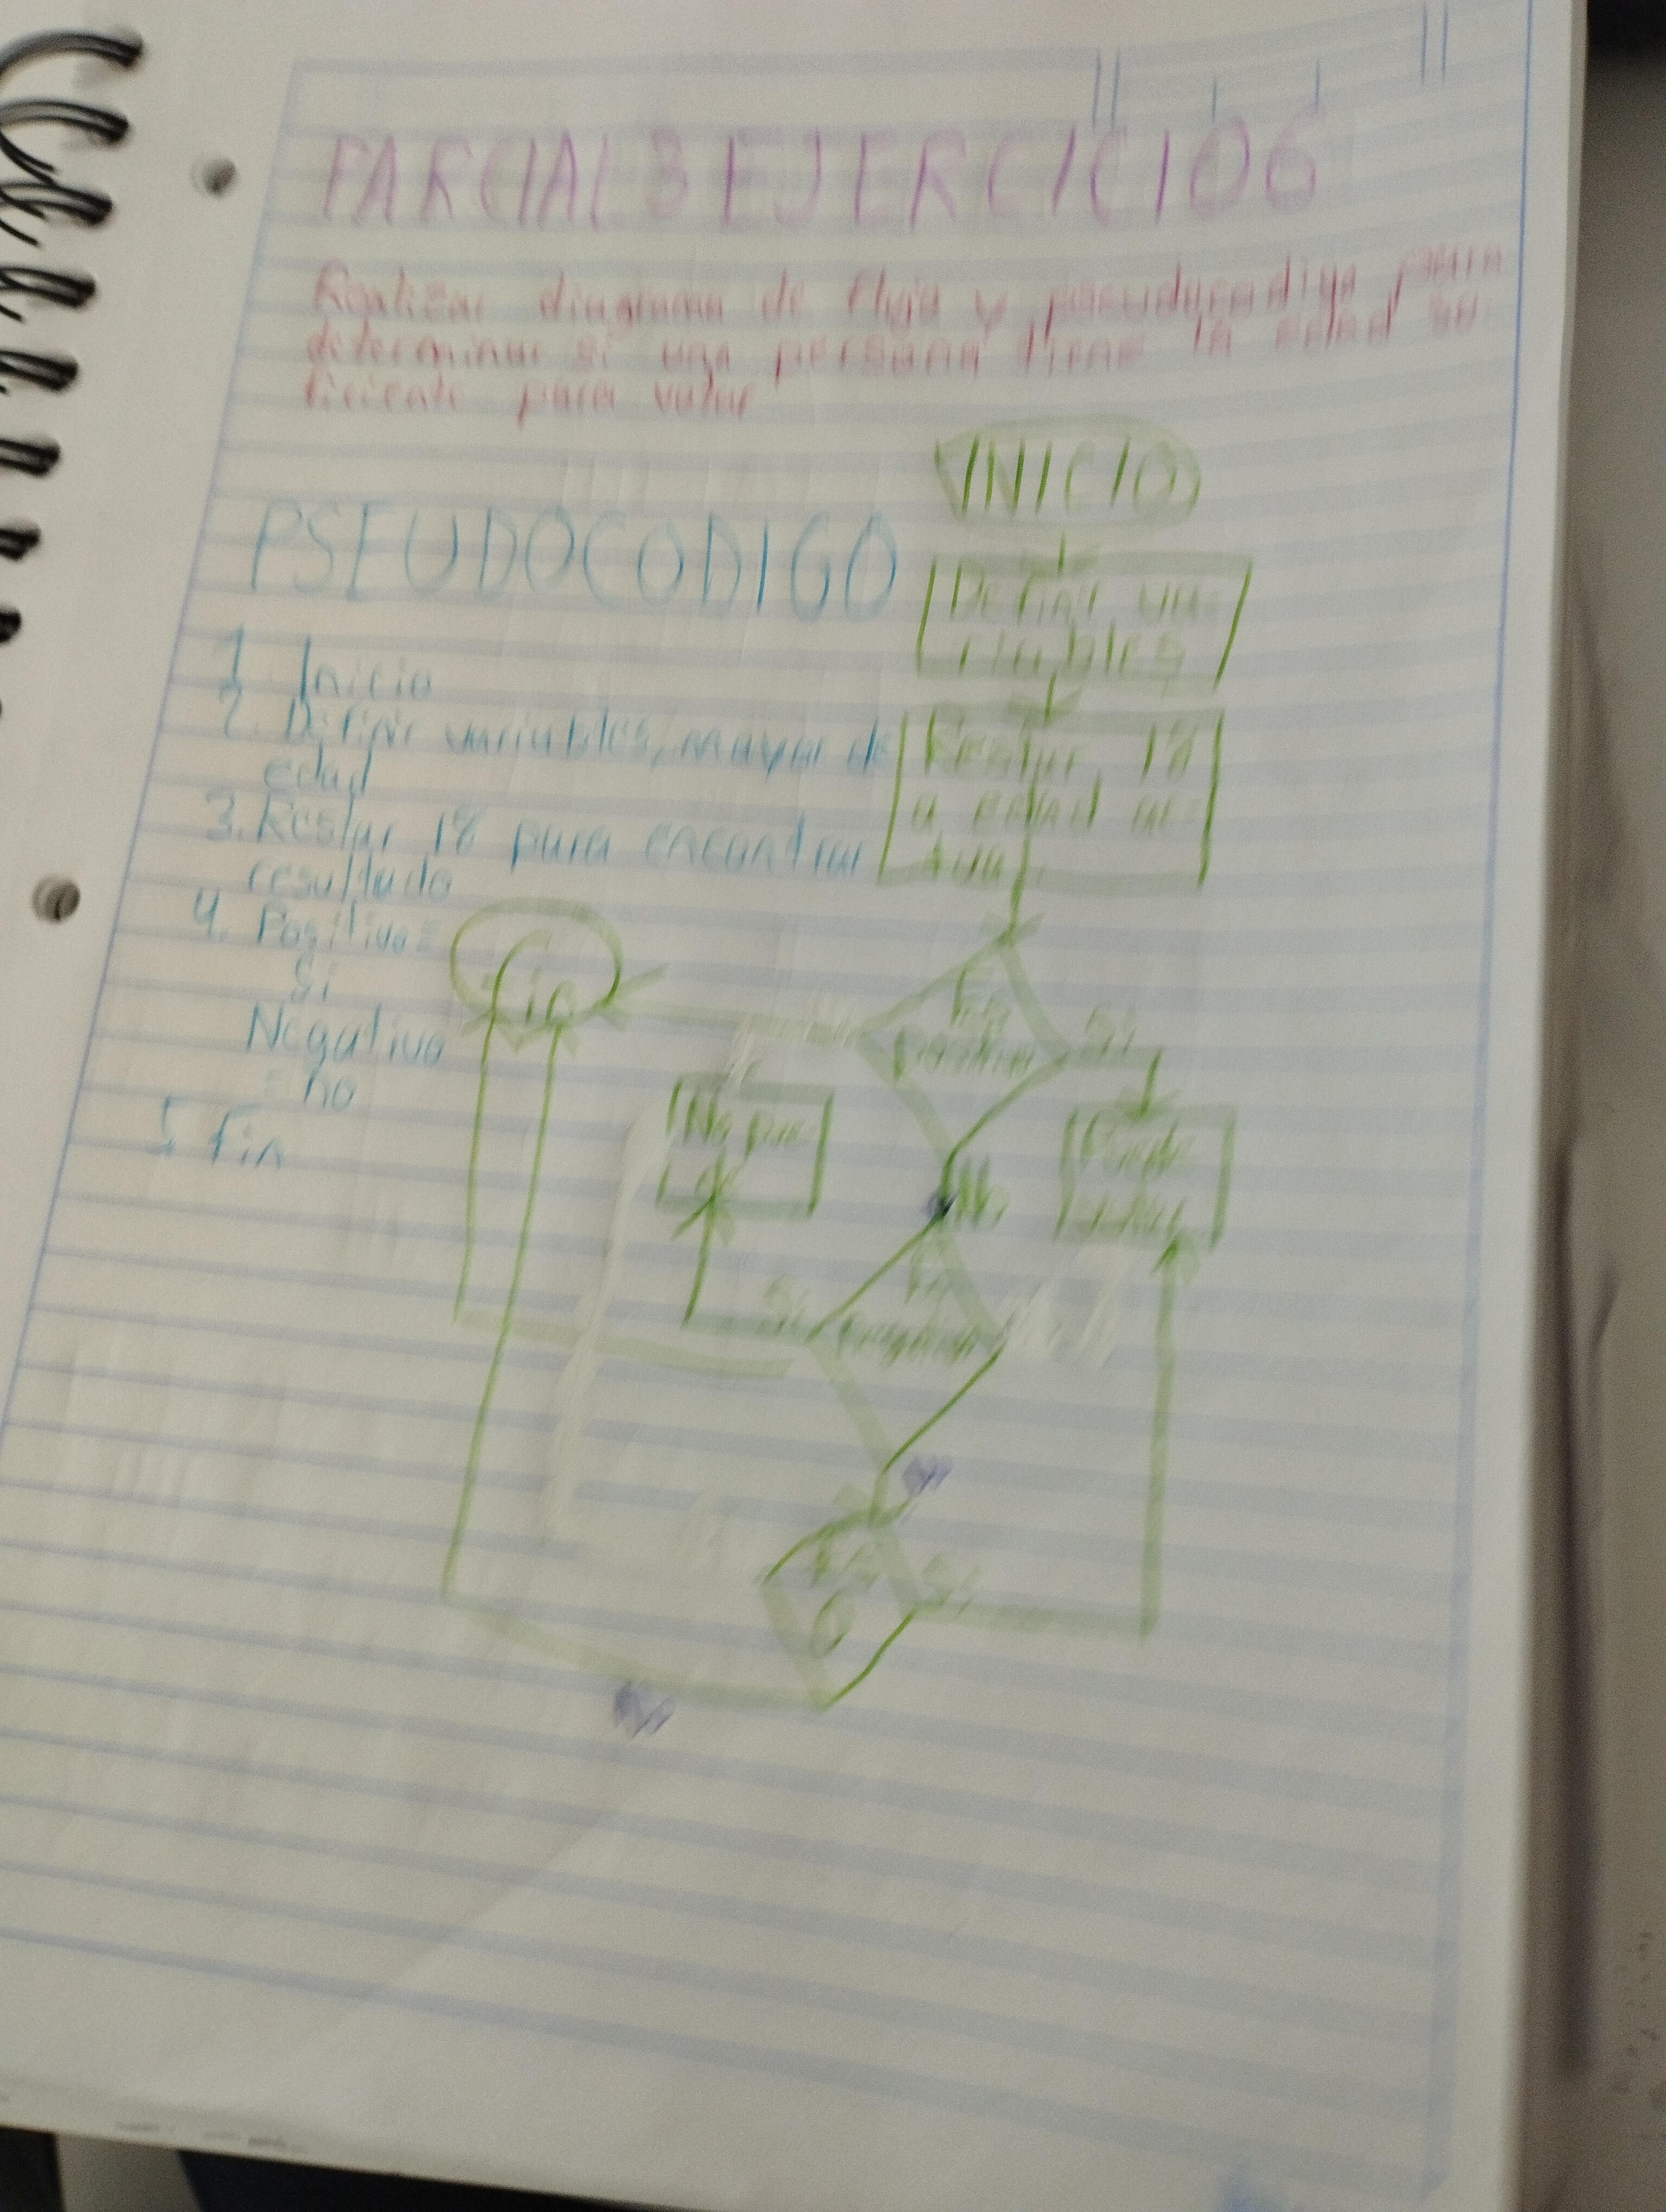 PARCIAL 3 EJERCICIO 6
Realizar diagrama de flujo y pseudocodigo para
determinar si una persona tiene la edad su-
ficiente para votar
INICIO
PSEUDOCODIGO
Definir va-
riables
1. Inicio
2. Definir variables, mayor de
edad
3. Restar 18 para encontrar
resultado
4. Positivo =
Si
Negativo
= no
5. Fin
Restar 18
a edad ac-
tual
fin
Es
positivo
Si
No pue-
de
Puede
votar
No
Es
negativo
Si
Es
0
Si